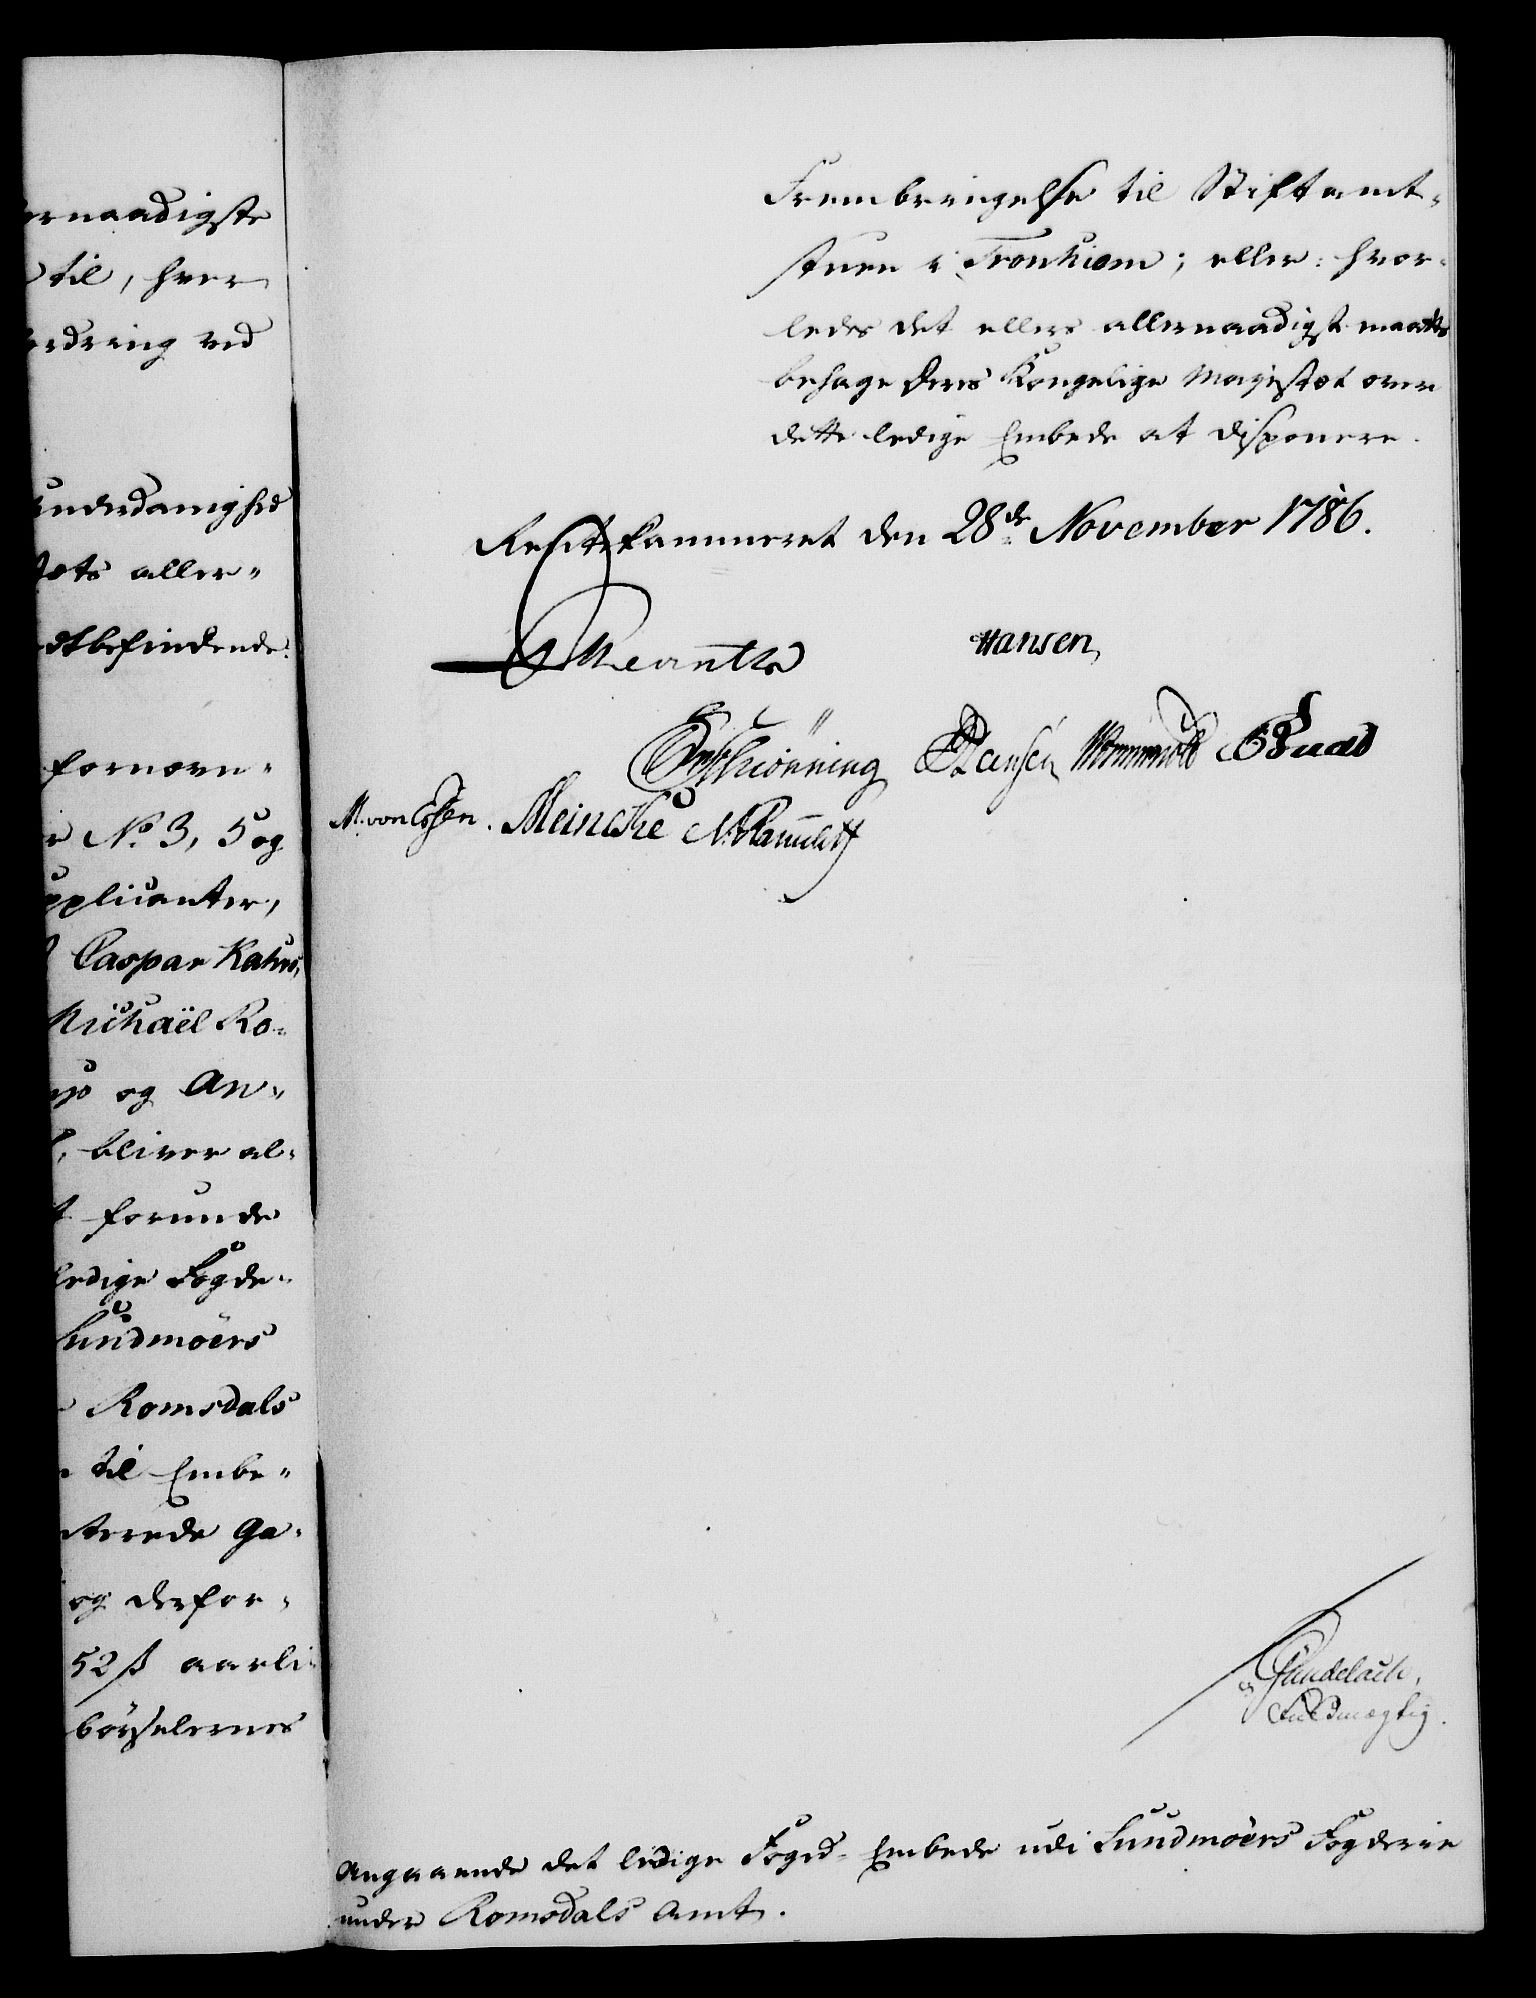 ernaadigste
til, hver
ordring ved
underdanighed
tets aller-
dtbefindende.
fornævn-
No 3, 5 og
upplicanter,
Caspar Kahrs,
Michaël Ro-
og An-
, bliver al-
forunde
ledige Fogde-
Sundmöers
Romsdals
til Embe-
terede Ga-
og derfor-
52 ß aarli-
börselernes
Frembringelse til Stiftamt-
stuen i Tronhiem; eller: hvor-
ledes det ellers allernaadigst maatte
behage Deres Kongelige Majestæt over
dette ledige Embede at disponere.
Rentekammeret den 28de November 1786.
Hansen,
Schiönning Hansen
M. von Essen. Meincke
Fuldmægtig.
Angaaende det ledige Foged-Embede udi Sundmöers Fogderie
under Romsdals Amt.